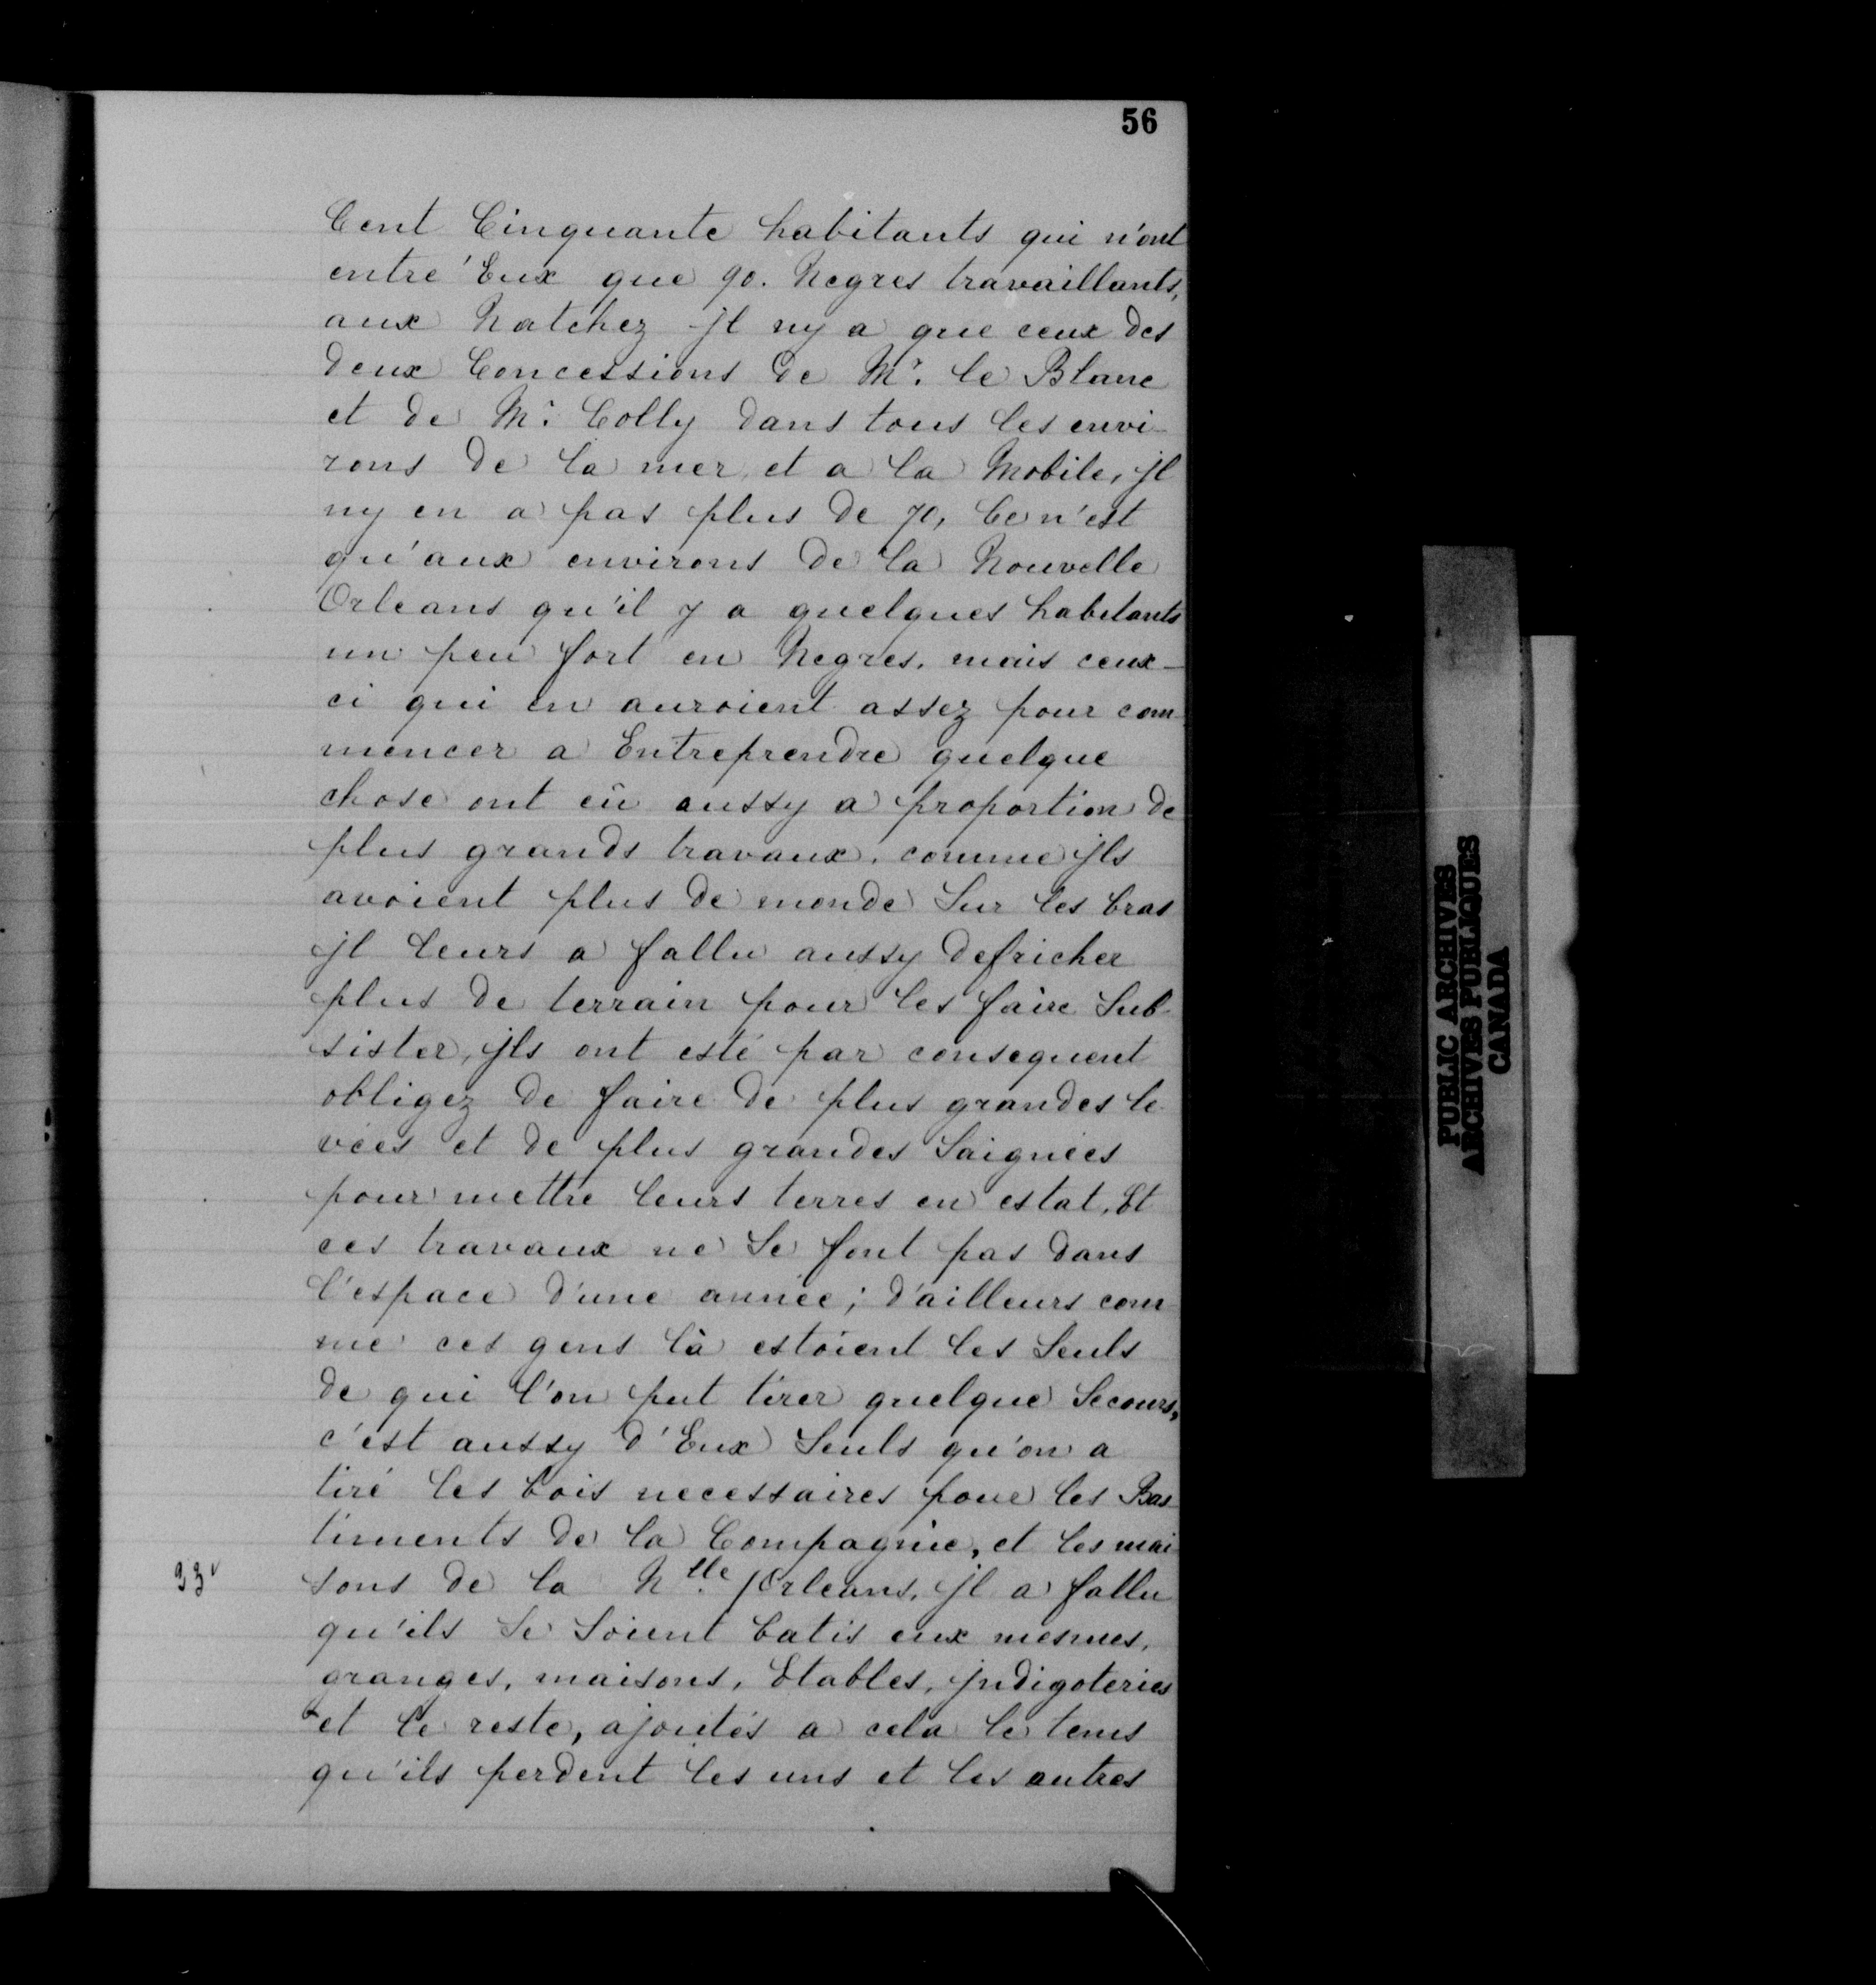 56
Cent Cinquante habitants qui n'ont
entre Eux que 90. Negres travaillants,
aux Natchez jl ny a que ceux des
deux Concessions de Mr. le Blanc
et de Mr. Colly dans tous les envi-
rons de la mer et a la Mobile, jl
ny en a pas plus de 70, Ce n'est
qu'aux environs de la Nouvelle
Orleans qu'il y a quelques habitants
un peu fort en Negres. mais ceux-
ci qui en auroient assez pour com-
mencer a Entreprendre quelque
chose ont eû aussy a proportion de
plus grands travaux. comme jls
avoient plus de monde Sur les bras
jl leurs a fallu aussy defricher
plus de terrain pour les faire Sub-
sister, jls ont esté par consequent
obligez de faire de plus grandes le-
vées et de plus grandes Saignées
pour mettre leurs terres en estat, Et
ces travaux ne Se font pas dans
l'espace d'une année; d'ailleurs com-
me ces gens là estoient les Seuls
de qui l'on put tirer quelque Secours,
c'est aussy d'Eux Seuls qu'on a
tiré les bois necessaires pour les Bas-
timents de la Compagnie, et les mai-
23v
sons de la Nlle. /Orleans. jl a fallu
qu'ils Se Soient batis eux mesmes,
granges, maisons, Etables, jndigoteries
et le reste, ajoutés a cela le tems
qu'ils perdent les uns et les autres
PUBLIC ARCHIVES
ARCHIVES PUBLIQUES
CANADA